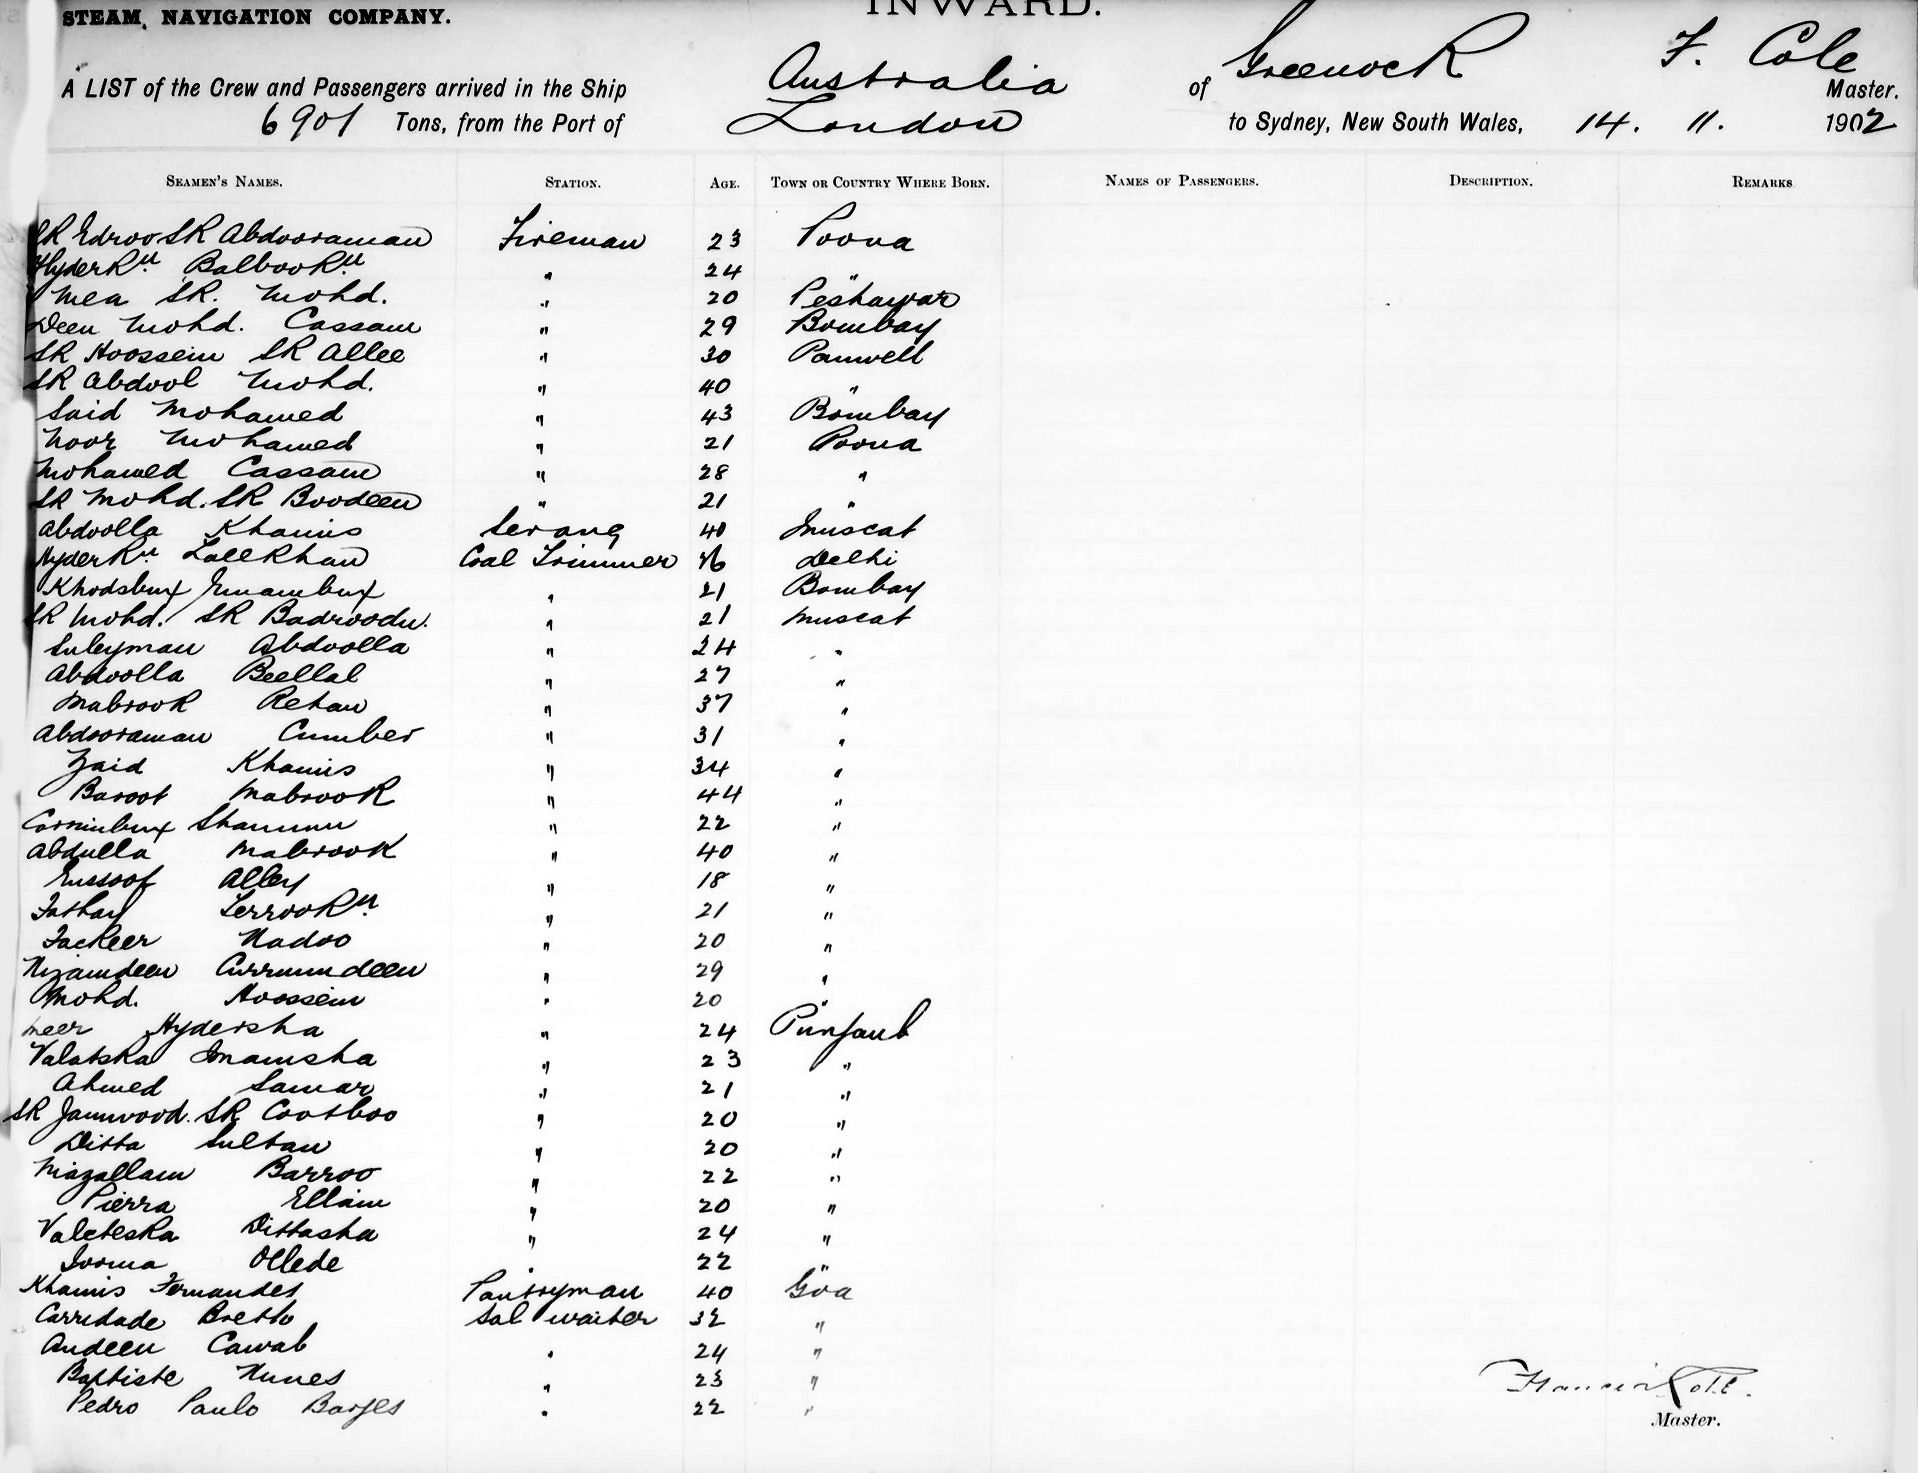 STEAM NAVIGATION COMPANY.
INWARD.
A LIST of the Crew and Passengers arrived in the Ship Australia of Greenock F. Cole Master.
6901 Tons, from the Port of London to Sydney, New South Wales, 14. 11. 1902
SEAMEN'S NAMES. STATION. AGE. TOWN OR COUNTRY WHERE BORN. NAMES OF PASSENGERS. DESCRIPTION. REMARKS
SK Edroo SK Abdooraman Fireman 23 Poona
HyderKn BalbooKn " 24 "
Mea SK. Mohd. " 20 Peshawar
Deen Mohd. Cassam " 29 Bombay
SK Hoossein SK Allee " 30 Panwell
SK Abdool Mohd. " 40 "
Said Mohamed " 43 Bombay
Noor Mohamed " 21 Poona
Mohamed Cassam " 28 "
SK Mohd. SK Boodeen " 21 "
Abdoolla Khamis Serang 40 Muscat
HyderKn LallKhan Coal Trimmer Delhi
Khodsbux Emambux " 21 Bombay
SK Mohd. SK Badroodn. " 21 Muscat
Suleyman Abdoolla " 24 "
Abdoolla Beellal " 27 "
Mabrook Rehan " 37 "
Abdooraman Cumber " 31 "
Zaid Khamis " 34 "
Baroot Mabrook " 44 "
Corimbux " 22 "
Abdulla Mabrook " 40 "
Eussoof Alley " 18 "
FerrooKn " 21 "
Fackeer Nadoo " 20 "
Nizamdeen Currumdeen " 29 "
Mohd. Hoossein " 20 "
Meer Hydersha " 24 Punjaub
Imamsha " 23 "
Ahmed Samar " 21 "
SK Jamwood. SK Cootboo " 20 "
Ditta Sultan " 20 "
Niazallam Barroo " 22 "
Pierra Ellam " 20 "
Dittasha " 24 "
Ollede " 22 "
Khamis Fernandes Pantryman 40 Goa
Carridade Bretto Sal waiter 32 "
Andeen Cawab " 24 "
Baptiste Nunes " 23 "
Pedro Paulo Borges " 22 "
Francis Cole.
Master.